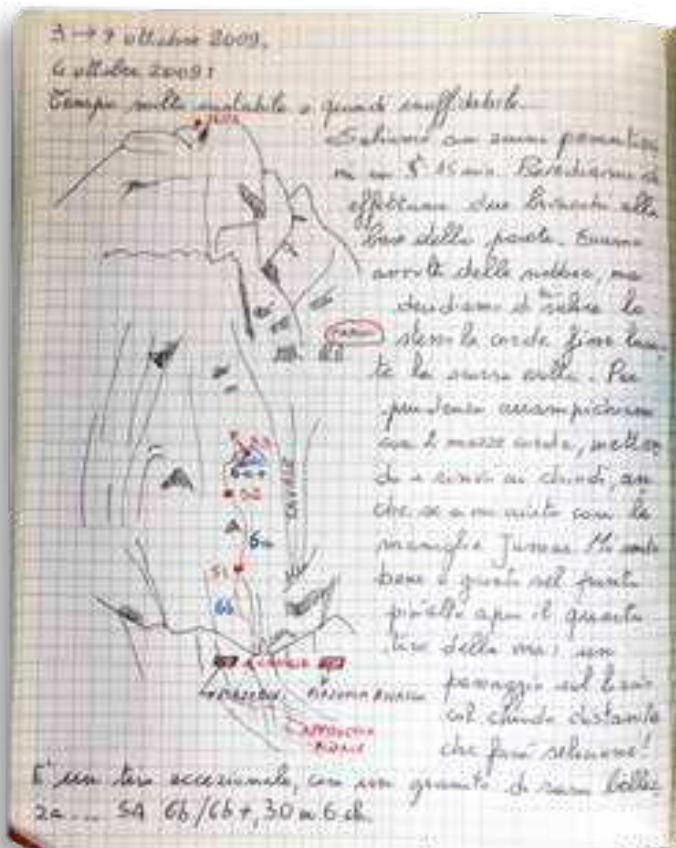 3 → 7 ottobre 2009.
6 ottobre 2009:
Tempo molto instabile e quindi inaffidabile.
Saliamo con zaini
in 5h 15 min. Decidiamo di
effettuare due bivacchi alla
base della parete. Siamo
avvolti della nebbia, ma
decidiamo di salire lo
stesso le corde fisse
te la scorsa volta. Per
prudenza arrampichiamo
con 2 mezze corde, metten
do i rinvii ai chiodi, an
che se a me aiuto con le
maniglie Jumar. Mi sento
bene e giunto nel punto
più alto apro il quarto
tiro della via: un
passaggio sul liscio
col chiodo distante
che farà selezione!
6a+
S3
S2
6a
S1
6b
È un tiro eccezionale, con un granito di rara bellez
za... S4 6b/6b+, 30 m 6 ch.